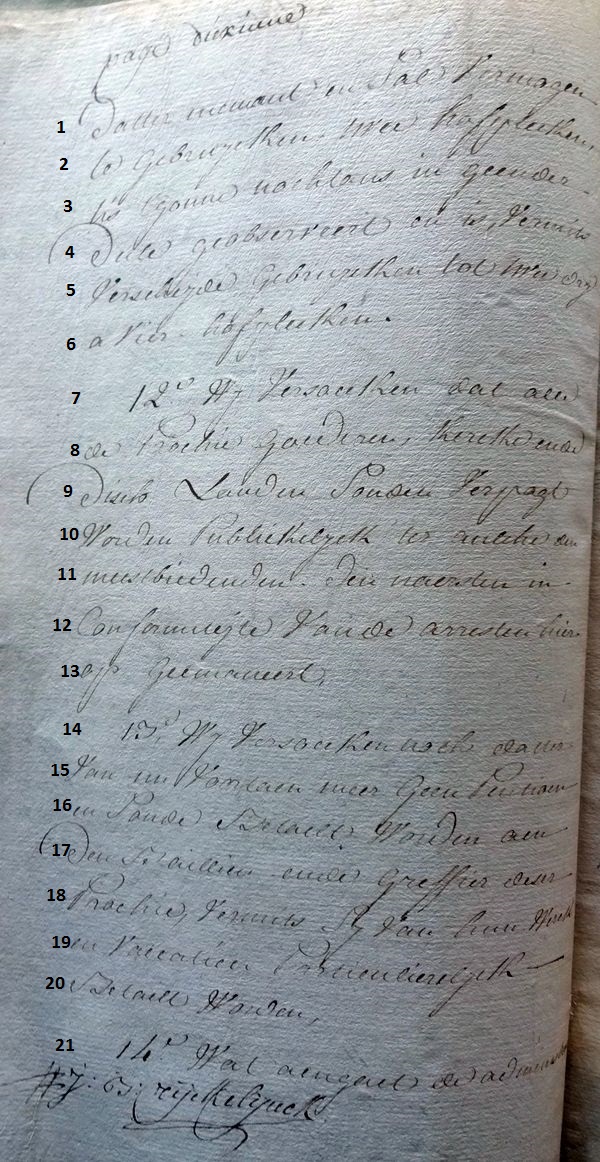 page dixieme
1 datter niemant en Sal Vermogen
2 te gebruycken twee hofsteden,
3 't is gonne nochtans in geender-
4 deele geobserveert en is, Vermits
5 Verscheyde gebruycken tot twee dry
6 a Vier hofsteden.
7 12° Wy Versoecken dat alle
8 de Prochie goederen, kercke ende
9 disch Landen Souden Verpagt
10 Worden Publiekelyck ten aensien den
11 meestbiedenden. den naersten in
12 Conformiteyte Van de arresten hier
13 op geemaneert,
14 13° Wy Versoecken noch datter
15 Van nu Voortaen meer geen Pensioen
16 en Soude Betaelt Worden aen
17 den Bailliu ende Greffier deser
18 Prochie, Vermits Sy Van hun Werck
19 en Vacatien Particulierelyck
20 Betaelt Worden,
21 14° Wat aengaet de